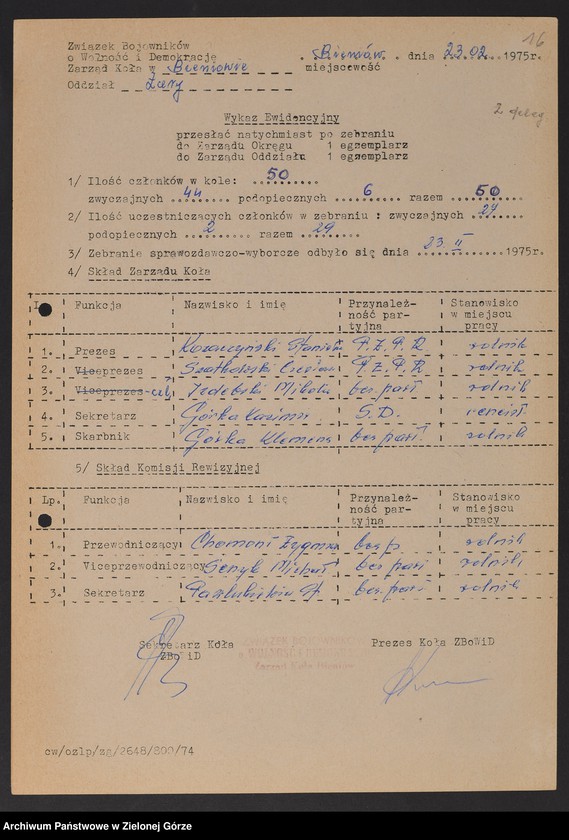 16
Związek Bojowników
o Wolność i Demokrację
Zarząd Koła w Bieniowie
Oddział Żary
Bieniów. dnia 23.02 1975r.
miejscowość
2 deleg
Wykaz Ewidencyjny
przesłać natychmiast po zebraniu
do Zarządu Okręgu 1 egzemplarz
do Zarządu Oddziału 1 egzemplarz
1/ Ilość członków w kole: 50
zwyczajnych 44 podopiecznych 6 razem 50
2/ Ilość uczestniczących członków w zebraniu : zwyczajnych 27
podopiecznych 2 razem 29
3/ Zebranie sprawozdawczo-wyborcze odbyło się dnia 23. II 1975r.
4/ Skład Zarządu Koła
Funkcja Nazwisko i imię Przynależ- Stanowisko
ność par- w miejscu
tyjna pracy
1. Prezes P.Z.P.R rolnik
2. Viceprezes P.Z.P.R rolnik
3. Viceprezes bez part rolnik
4. Sekretarz Górka Kazimierz S.D.
5. Skarbnik Górka Klemens bez part. rolnik
5/ Skład Komisji Rewizyjnej
Lp. Funkcja Nazwisko i imię Przynależ- Stanowisko
ność par- w miejscu
tyjna pracy
1. Przewodniczący bez p rolnik
2. Viceprzewodniczący Michał bez part rolnik
3. Sekretarz bez part rolnik
Sekretarz Koła Prezes Koła ZBoWiD
ZBoWiD
ZWIĄZEK BOJOWNIKÓW
o WOLNOŚĆ i DEMOKRACJĘ
Zarząd Koła Bieniów
cw/ozlp/zg/2648/800/74
Archiwum Państwowe w Zielonej Górze